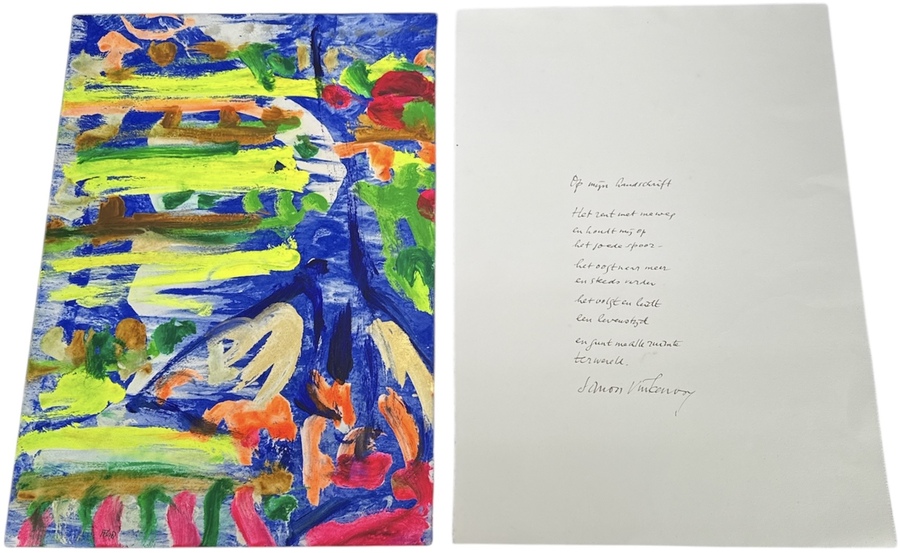 Op mijn handschrift
Het rent met me weg
en houdt mij op
het goede spoor –
het oogt naar meer
en steeds verder
het volgt en leidt
een levenstijd
en gunt me alle ruimte
ter wereld.
Simon Vinkenoog